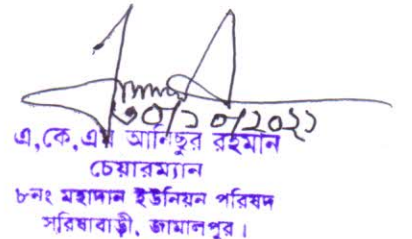 ৩০/১০/২০২১
এ,কে,এম আনিছুর রহমান
চেয়ারম্যান
৮নং মহাদান ইউনিয়ন পরিষদ
সরিষাবাড়ী, জামালপুর।